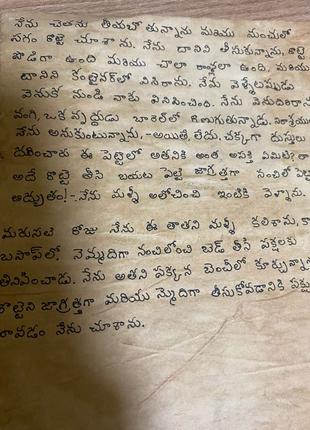 నేను చెతను తీయబోతున్నాను మరియు మంచులో
సగం రొట్టె చూశాను. నేను దానిని తీసుకున్నాను, రొట్టె
పొడిగా ఉంది మరియు చాలా రాళ్లలా ఉంది, మరియు
దానిని కంటైనర్‌లో విసిరాను. నేను వెళ్ళేటప్పుడు
వెనుక నుండి నాకు వినిపించింది. నేను వెనుదిరిగా
వంగి, ఒక వృద్ధుడు బారెల్‌లో రిణుగుతున్నాడు.
నేను అనుకుంటున్నాను, -అయితే లేదు. చక్కగా దుస్తులు
ధరించారు ఈ పెట్టెలో అతనికి అంత ఆసక్తి ఏమిటి?
అదే రొట్టె తీసి బయట పెట్టి జాగ్రత్తగా సంచిలో
అద్భుతం! -నేను మళ్ళీ ఆలోచించి ఇంటికి వెళ్ళాను.
మరుసటి రోజు నేను ఈ తాతని మళ్ళీ కలిశాను,
బస్టాప్‌లో. నెమ్మదిగా సంచిలోంచి బ్రెడ్ తీసి పక్షులకు
తినిపించాడు. నేను అతని పక్కన బెంచీలో కూర్చున్నా
రొట్టెని జాగ్రత్తగా మరియు మెల్లగా తీసుకోవడానికి
రావడం నేను చూశాను.